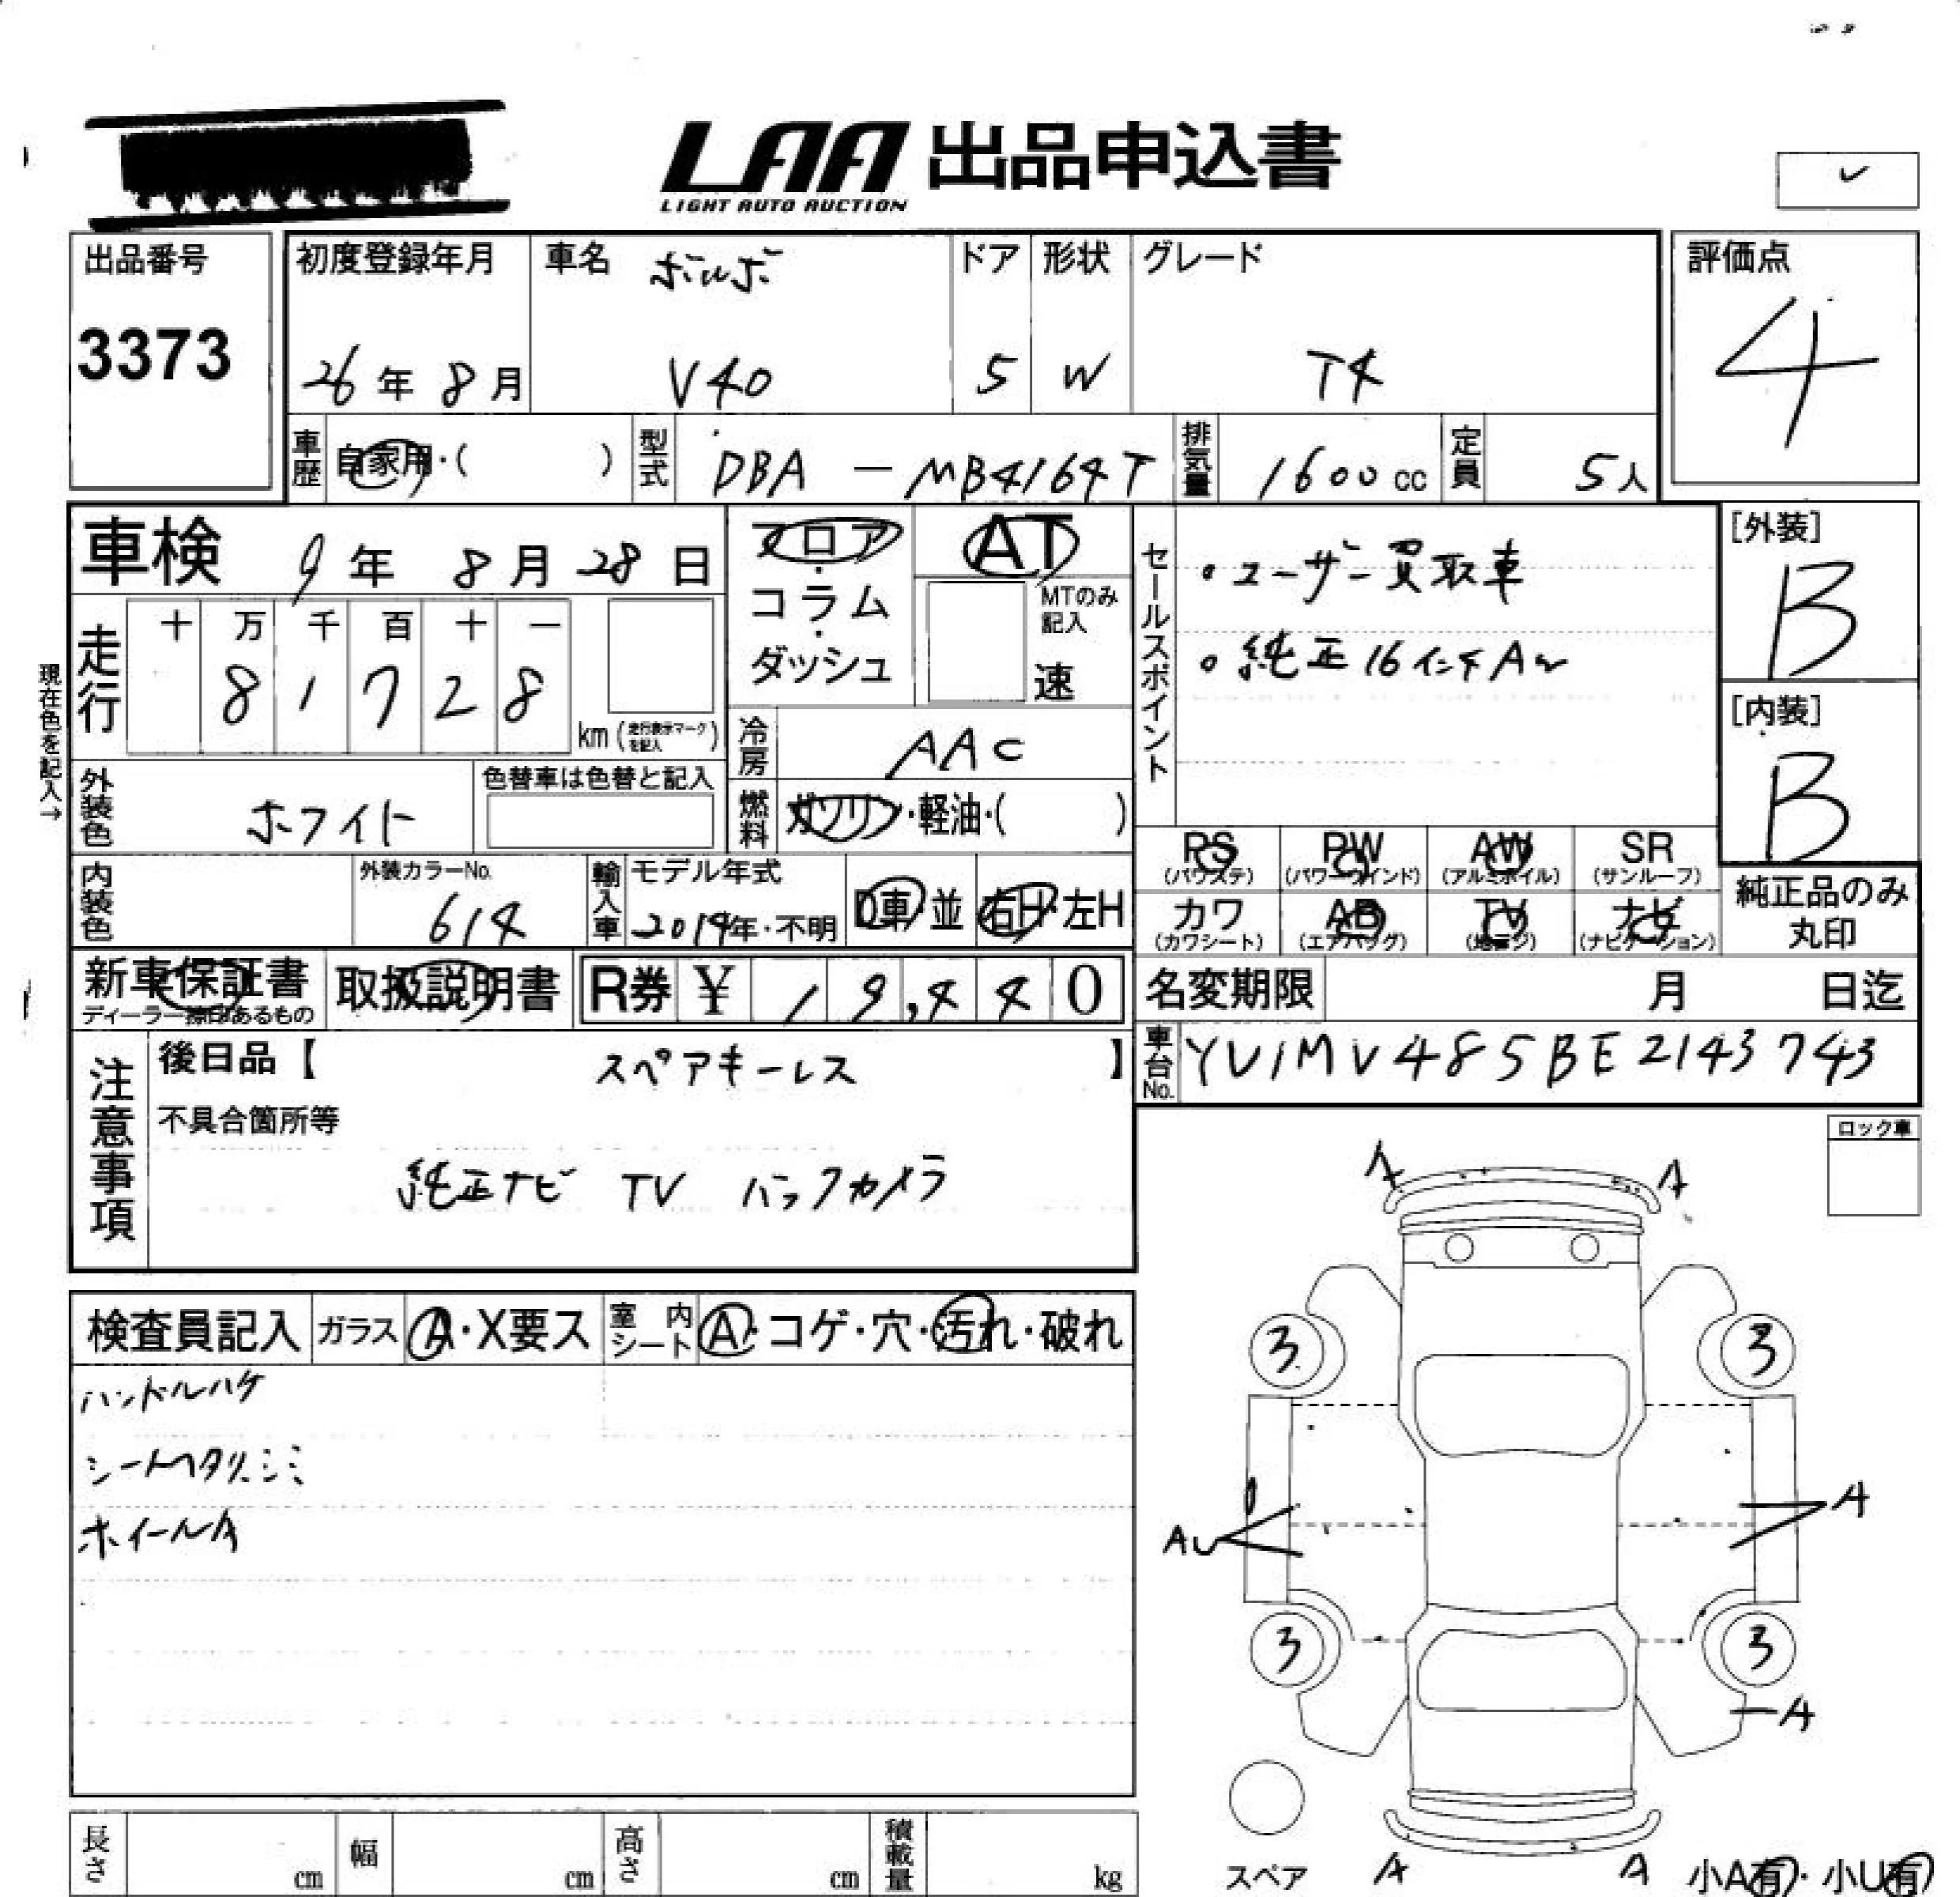 LAA 出品申込書
LIGHT AUTO AUCTION
出品番号
3373
初度登録年月
26年 8月
車名 ボルボ
V40
ドア
5
形状
W
グレード
T4
評価点
4
車歴 自家用・( )
型式 DBA - MB4164T
排気量 1600cc
定員 5人
車検 9年 8月 28日
フロア・コラム・ダッシュ
AT
MTのみ記入
速
走行 十 万 千 百 十 一
8 1 7 2 8
km (走行表示マークを記入)
現在色を記入→
冷房 AAC
燃料 ガソリン・軽油・( )
外装色 ホワイト
色替車は色替と記入
内装色
外装カラーNo.
614
輸入車 モデル年式
2014年・不明
D車・並
右H・左H
セールスポイント
・ユーザー買取車
・純正16インチAW
[外装]
B
[内装]
B
PS (パワステ)
PW (パワーウインド)
AW (アルミホイル)
SR (サンルーフ)
カワ (カワシート)
AB (エアバッグ)
TV (地デジ)
ナビ (ナビゲーション)
純正品のみ丸印
新車保証書
ディーラー捺印あるもの
取扱説明書
R券 ¥ 19,440
名変期限 月 日迄
車台No. YV1MV485BE2143743
注意事項
後日品【 スペアキーレス 】
不具合箇所等
純正ナビ TV バックカメラ
ロック車
検査員記入
ガラス A・X要ス
室内シート A・コゲ・穴・汚れ・破れ
ハンドルハゲ
ホイールA
A
A
3
3
AU
A
3
3
A
A
A
スペア
小A有・小U有
長さ cm
幅 cm
高さ cm
積載量 kg